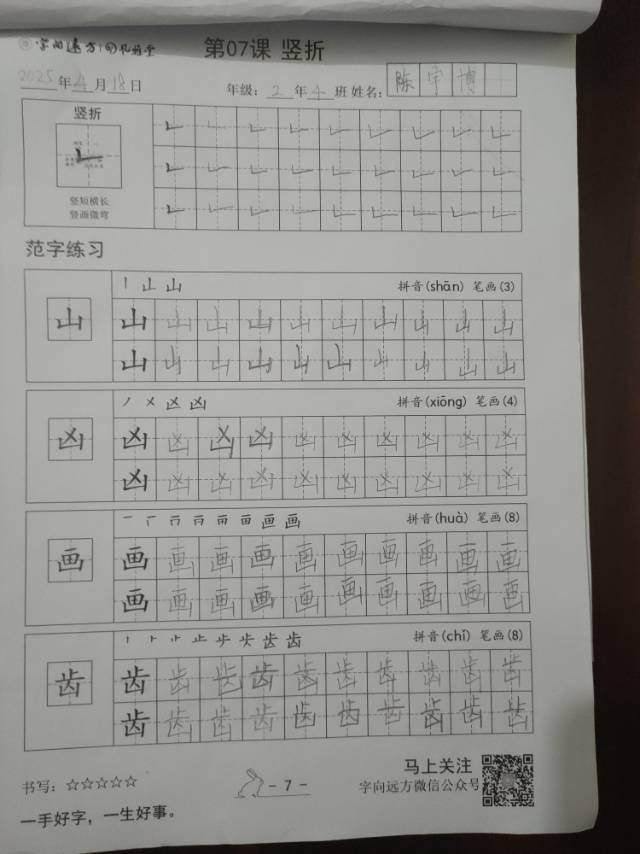 字向远方 第07课 竖折
2025年4月18日 年级：2年4班 姓名：陈宇博
竖折
竖短横长
竖画微弯
范字练习
丨 山 山 拼音(shān) 笔画(3)
山 山 山 山 山 山 山 山 山 山 山
山 山 山 山 山 山 山 山 山 山
凶 凶 拼音(xiōng) 笔画(4)
凶 凶 凶 凶 凶 凶 凶 凶 凶 凶 凶
凶 凶 凶 凶 凶 凶 凶 凶 凶 凶
画 画 拼音(huà) 笔画(8)
画 画 画 画 画 画 画 画 画 画 画
画 画 画 画 画 画 画 画 画 画
齿 齿 拼音(chǐ) 笔画(8)
齿 齿 齿 齿 齿 齿 齿 齿 齿 齿 齿
齿 齿 齿 齿 齿 齿 齿 齿 齿 齿
书写：☆☆☆☆☆ - 7 - 马上关注
字向远方微信公众号
一手好字，一生好事。